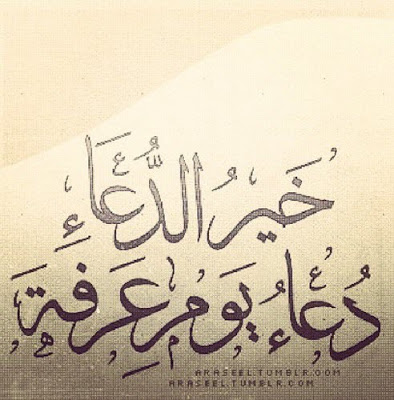 خَيرُ الدُّعَاءِ
دُعاءُ يَومِ عَرفةَ
ARASEEL.TUMBLR.COM
ARASEEL.TUMBLR.COM